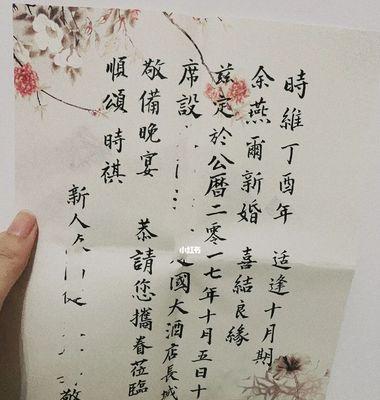 時維丁酉年 适逢十月期
余燕爾新婚 喜結良緣
茲定於公曆二零一七年十月五日十
席設 國大酒店長城
敬備晚宴 恭請您攜眷莅臨
順頌時祺
新人 敬
小红书